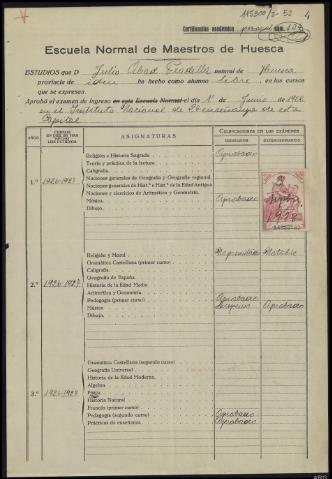 113300/2-52 4
Certificación académica personal núm.
Escuela Normal de Maestros de Huesca
ESTUDIOS que D Julio Abad natural de Huesca
provincia de idem ha hecho como alumno libre, en los cursos
que se expresan.
Aprobó el examen de ingreso en esta Escuela Normal el día 1º de Junio 1926
en el Instituto Nacional de 2ª enseñanza de esta
Capital
AÑOS
CURSOS
ASIGNATURAS
CALIFICACIONES EN LOS EXÁMENES
ORDINARIOS EXTRAORDINARIOS
Religión e Historia Sagrada Aprobado
Teoría y práctica de la lectura.
Caligrafía.
Nociones generales de Geografía y Geografía regional.
1.º 1926-1927 Nociones generales de Hist.ª e Hist.ª de la Edad Antigua
Nociones y ejercicios de Aritmética y Geometría. Aprobado
Música.
Dibujo.
1928
Religión y Moral
Gramática Castellana (primer curso) Notable
Caligrafía.
Geografía de España.
2.º 1926-1927 Historia de la Edad Media.
Aritmética y Geometría.
Pedagogía (primer curso) Aprobado
Música. Aprobado
Dibujo.
Gramática Castellana (segundo curso)
Geografía Universal
Historia de la Edad Moderna.
Algebra
3.º Física
Historia Natural
Francés (primer curso)
Pedagogía (segundo curso) Aprobado
Prácticas de enseñanza. Aprobado